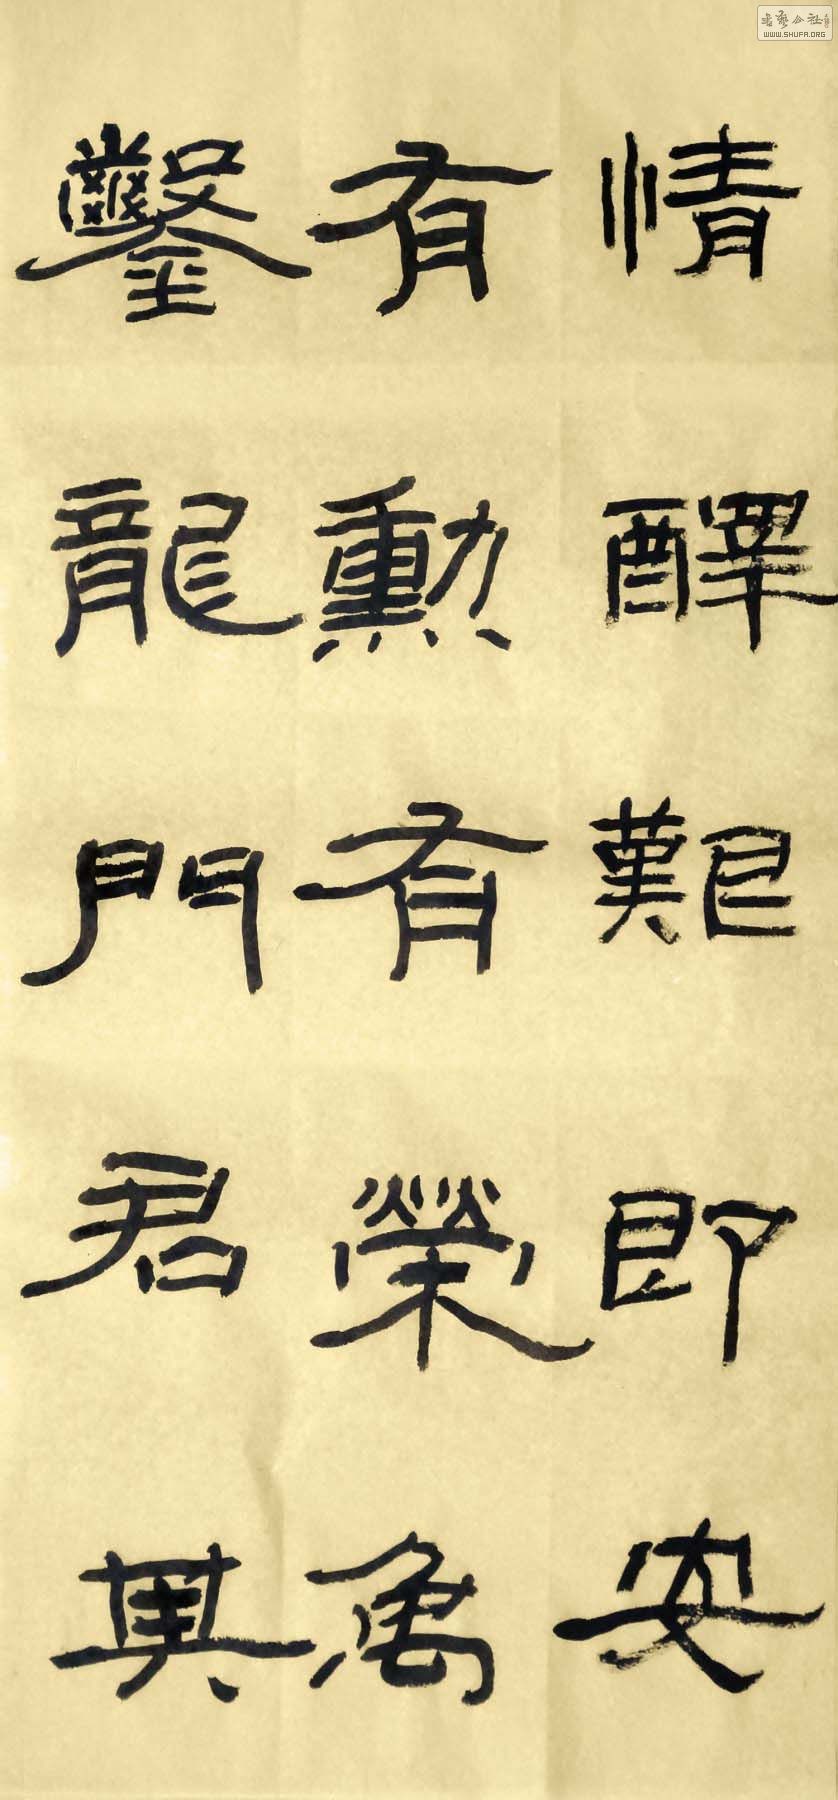 情醳艱即安
有勳有榮禹
鑿龍門君其
書藝公社
WWW.SHUFA.ORG